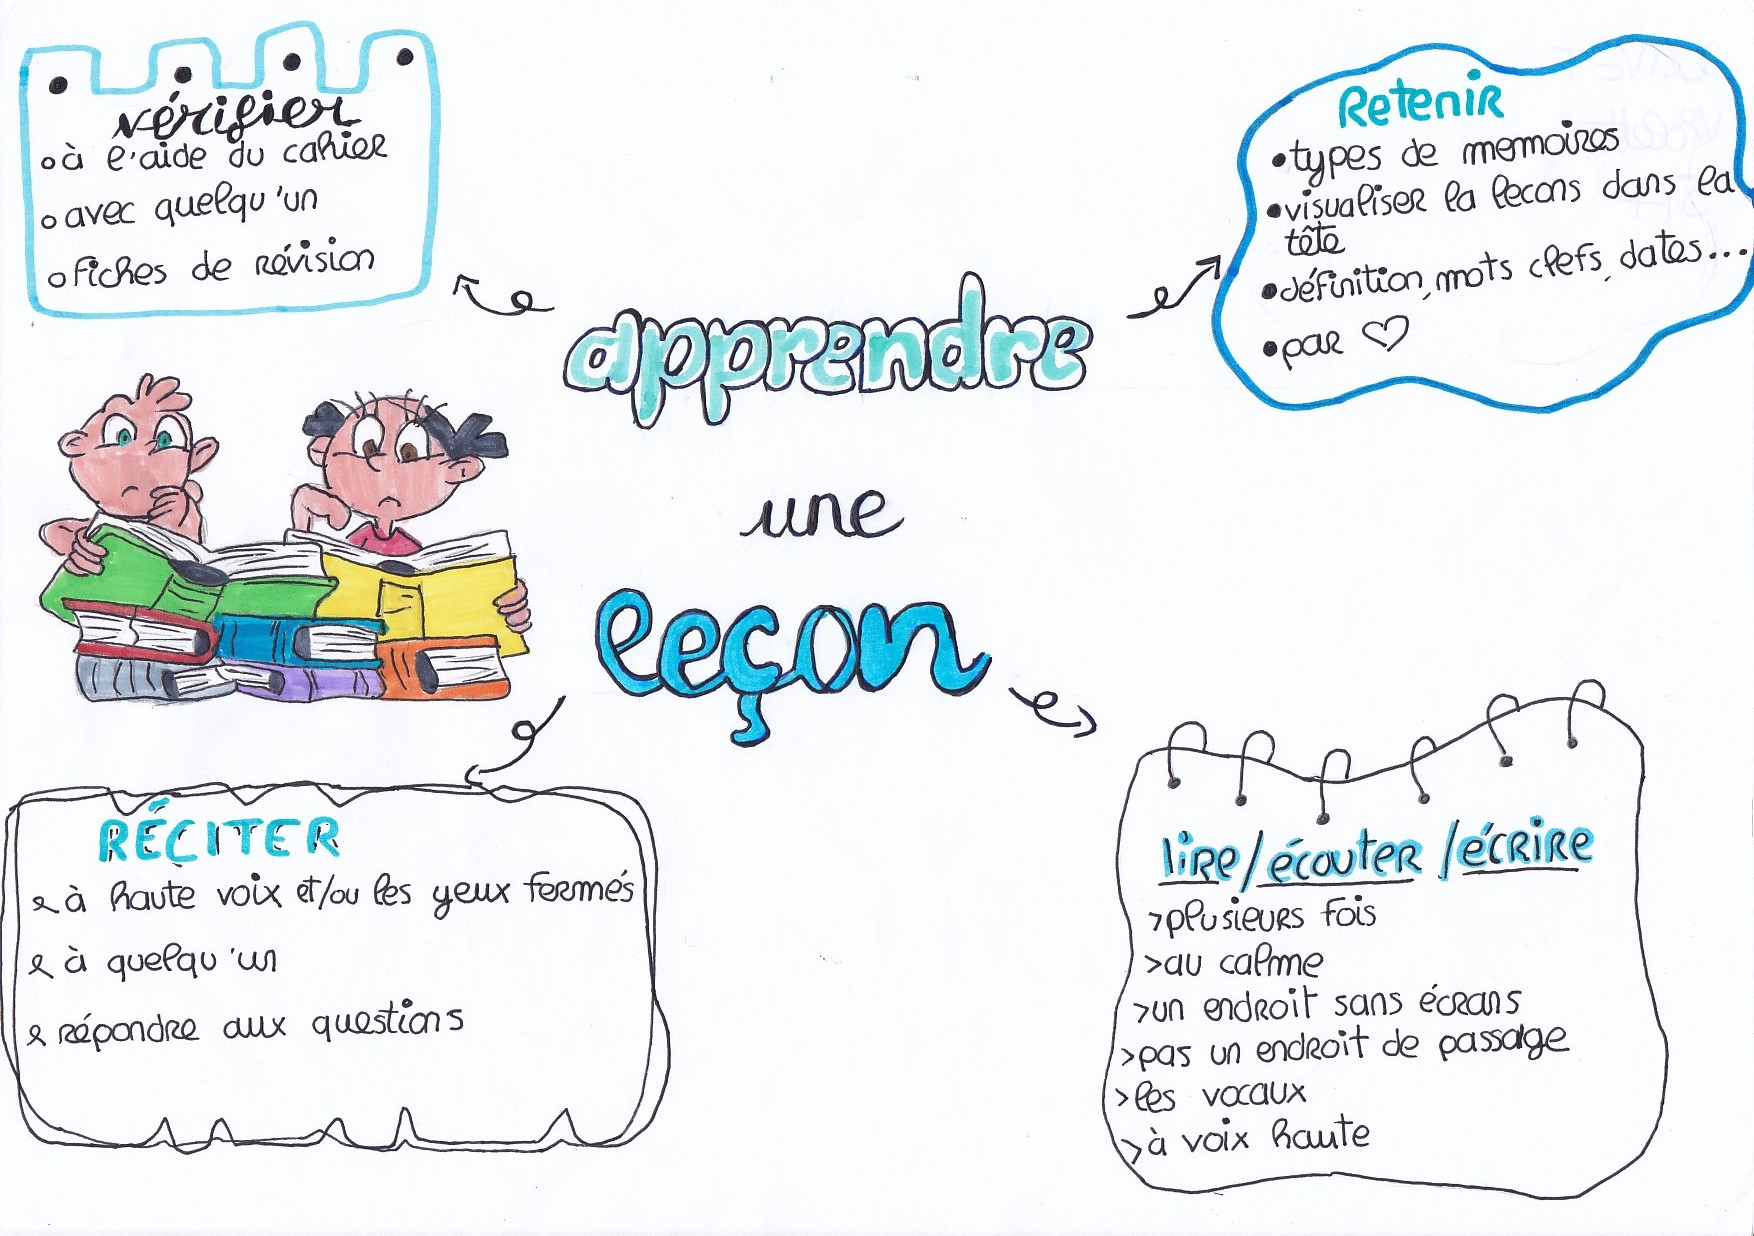 vérifier
à l'aide du cahier
avec quelqu'un
fiches de révision
Retenir
types de memoires
visualiser la lecons dans la
tête
définition, mots clefs, dates...
par ♡
apprendre
une
leçon
RÉCITER
à haute voix et/ou les yeux fermés
à quelqu'un
répondre aux questions
lire/écouter/écrire
>plusieurs fois
>au calme
>un endroit sans écrans
>pas un endroit de passage
>les vocaux
>à voix haute